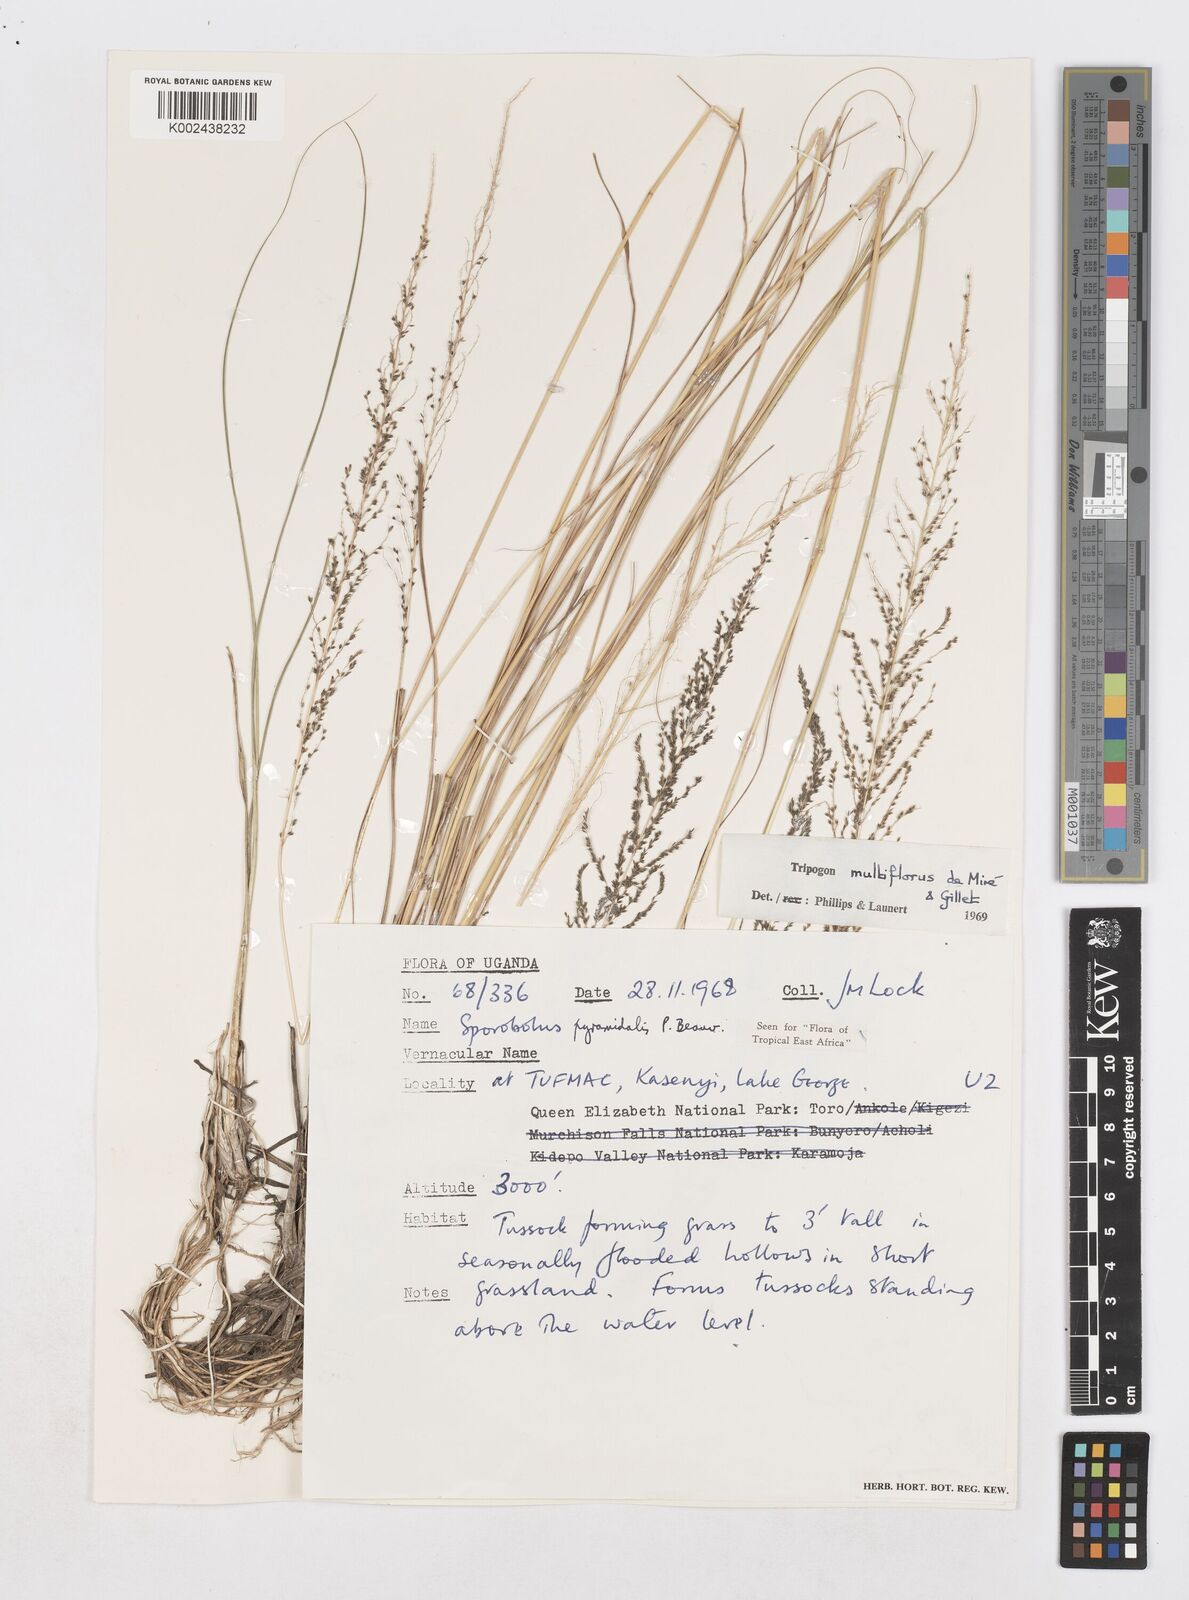 ROYAL BOTANIC GARDENS KEW
K002438232
Tripogon multiflorus de Miré
& Gillet
Det./rev: Phillips & Launert
1969
FLORA OF UGANDA
No. 68/336 Date 28.11.1968 Coll. JM Lock
Name Sporobolus pyramidalis P. Beauv.
Seen for "Flora of
Tropical East Africa"
Vernacular Name
Locality at TUFMAC, Kasenyi, Lake George. U2
Queen Elizabeth National Park: Toro/Ankole/Kigezi
Murchison Falls National Park: Bunyoro/Acholi
Kidepo Valley National Park: Karamoja
Altitude 3000'.
Habitat Tussock forming grass to 3' tall in
seasonally flooded hollows in short
Notes grassland. Forms tussocks standing
above the water level.
HERB. HORT. BOT. REG. KEW.
inches
Density
Don Williams
M001037
centimeters
Kew
copyright reserved
0 1 2 3 4 5 6 7 8 9 10
cm